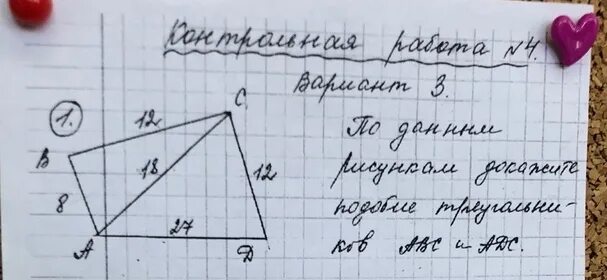 Контрольная работа №4.
Вариант 3.
1.
По данным
рисункам докажите
подобие треугольни-
ков АВС и АДС.
C
12
B
18
12
8
27
A
D